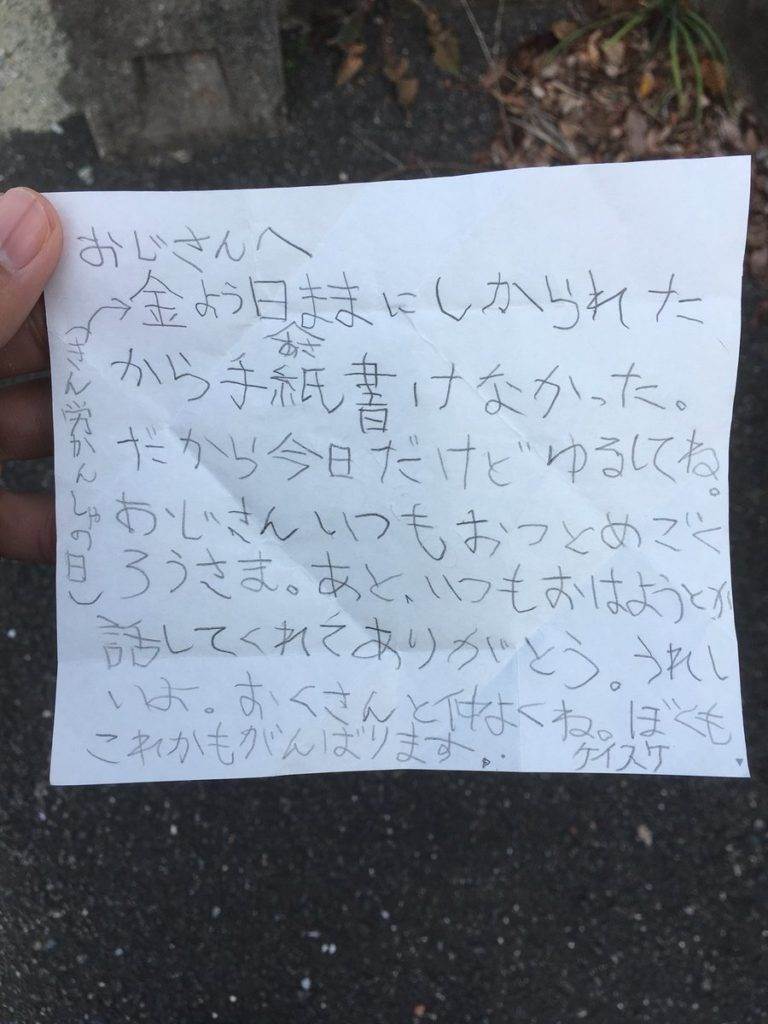 おじさんへ
金よう日ままにしかられた
あさ
から手紙書けなかった。
だから今日だけどゆるしてね。
おじさんいつもおつとめごく
ろうさま。あと、いつもおはようとか
話してくれてありがとう。うれし
いよ。おくさんと仲よくね。ぼくも
これかもがんばります。
ケイスケ
(きん労かんしゃの日)